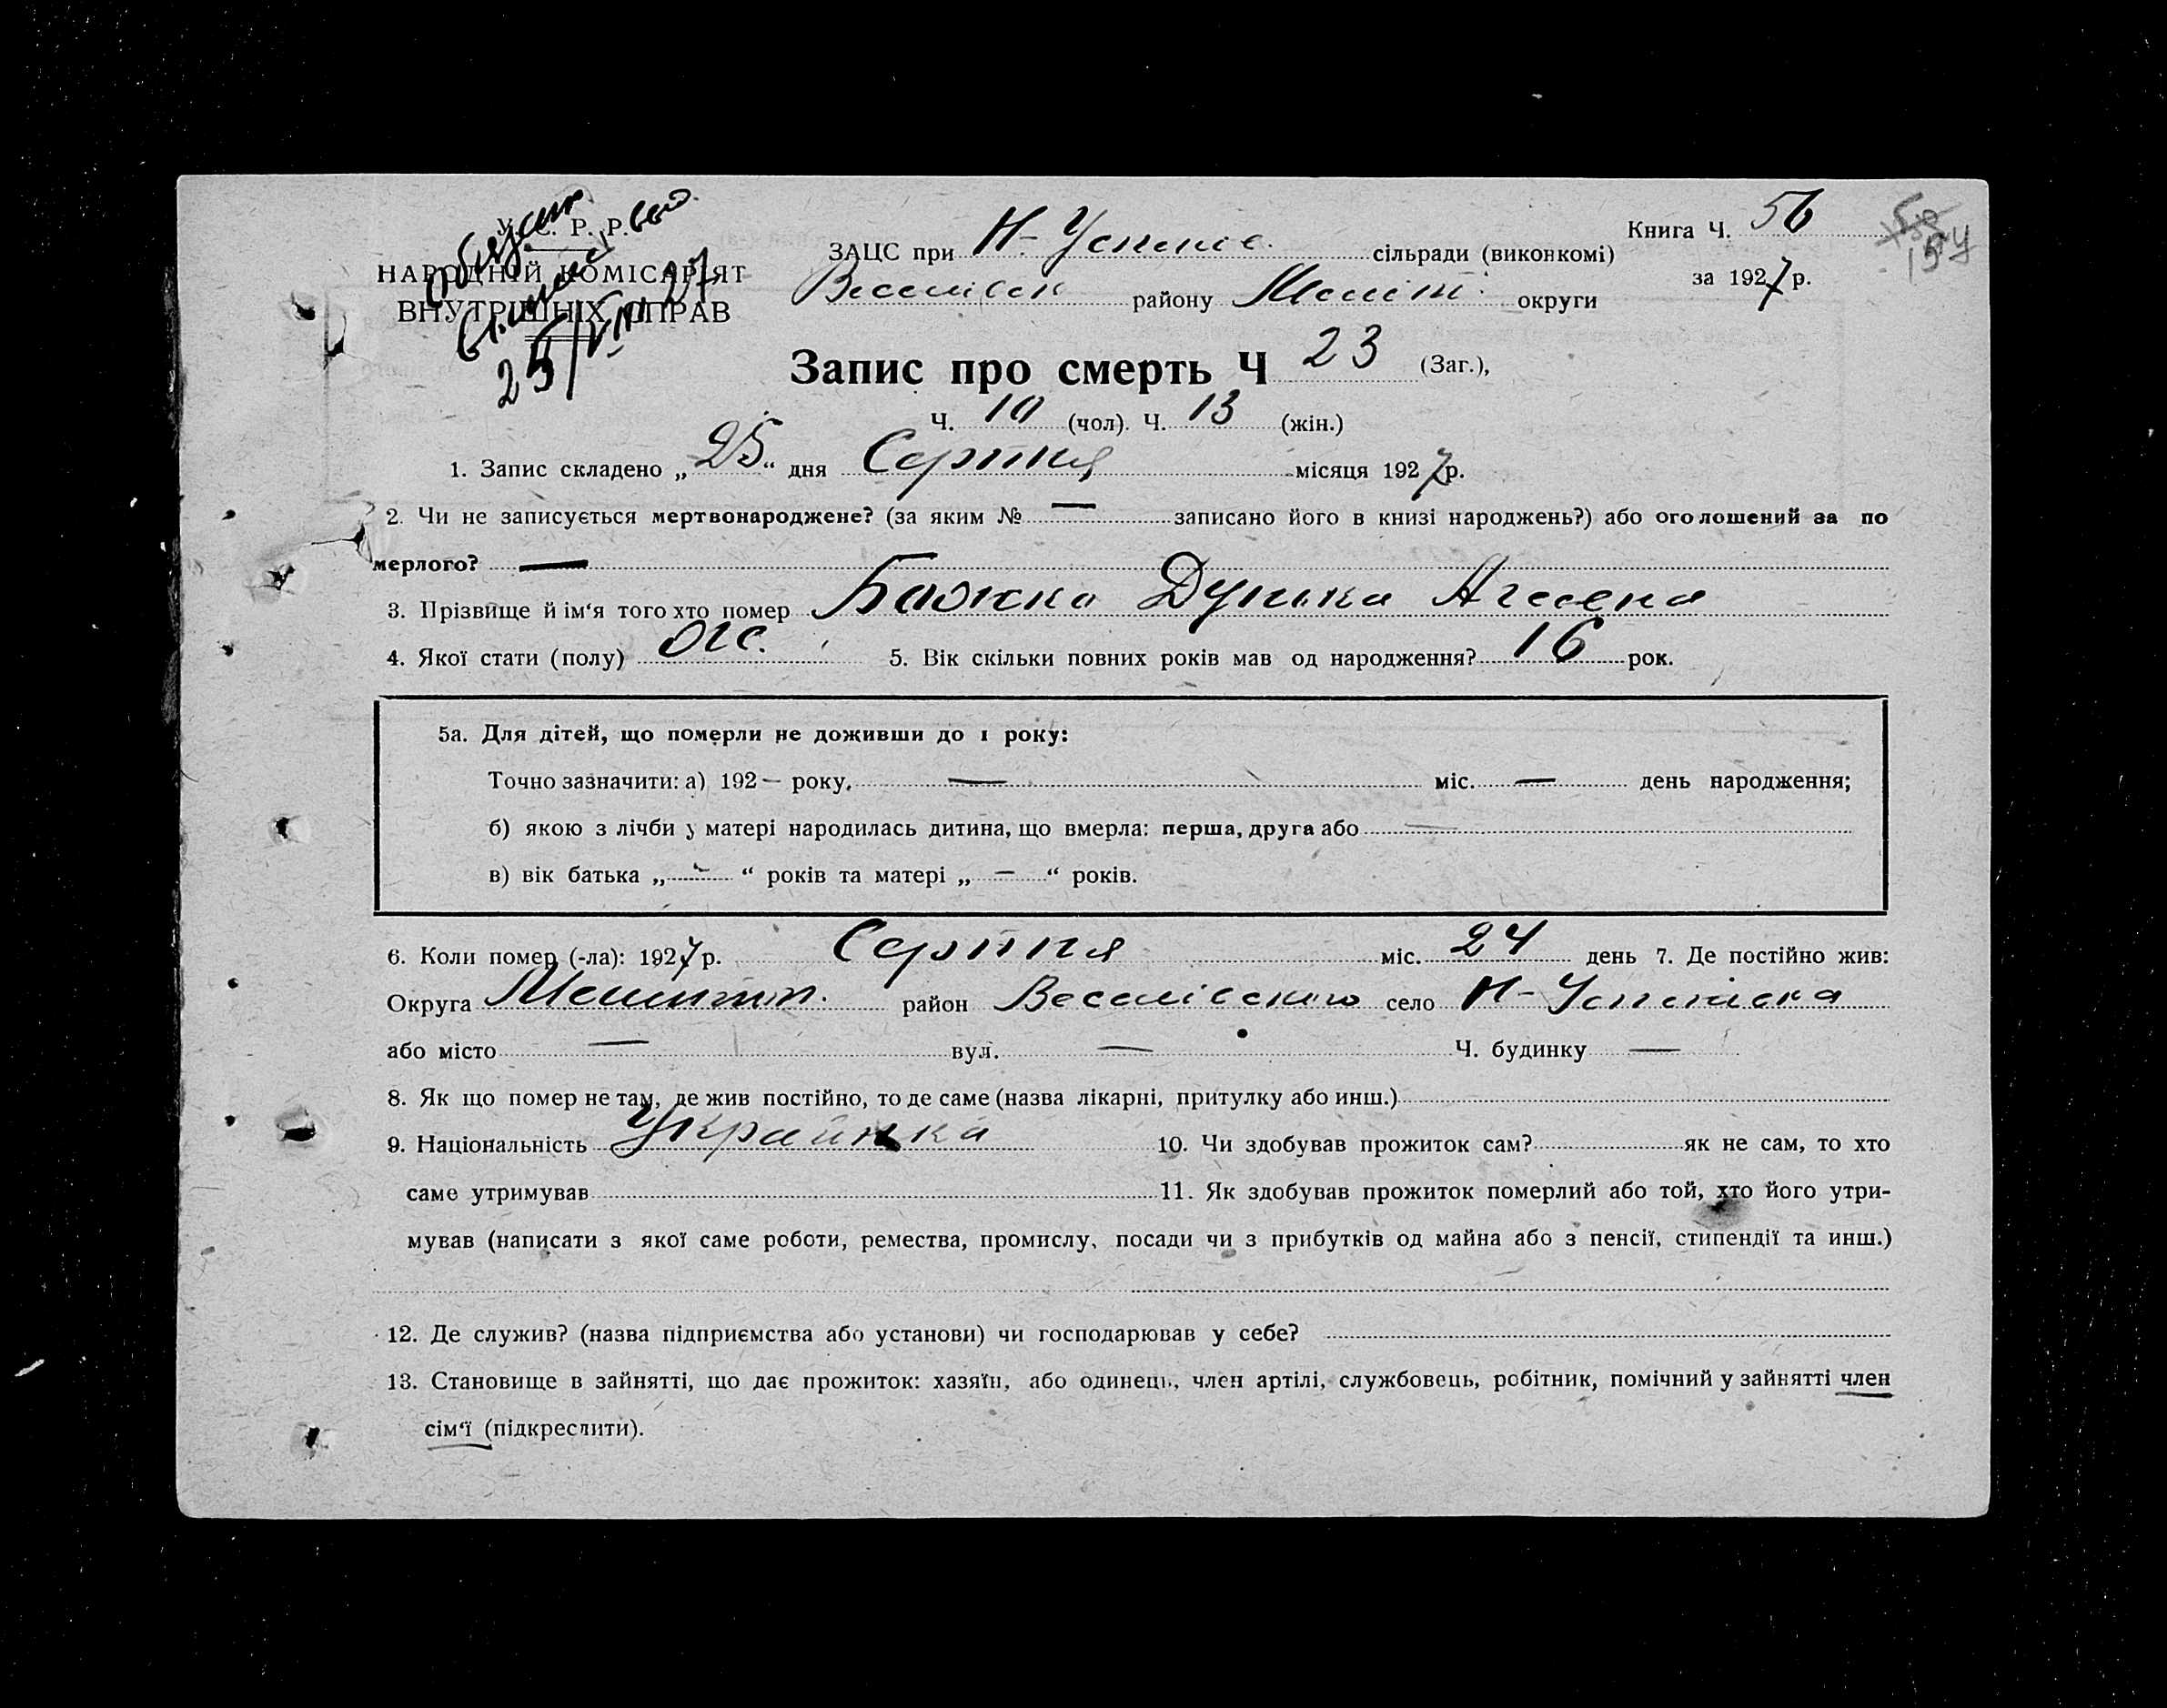 У. С. Р. Р.
НАРОДНІЙ КОМІСАРІЯТ
ВНУТРІШНІХ СПРАВ
25/VIII 27
ЗАЦС при Н-Успенів. сільради (виконкомі)
Веселівськ району Меліт. округи
Книга Ч. 56
за 1927 р.
Запис про смерть Ч 23 (Заг.),
Ч. 10 (чол). Ч. 13 (жін.)
1. Запис складено „25“ дня Серпня місяця 1927 р.
2. Чи не записується мертвонароджене? (за яким № — записано його в книзі народжень?) або оголошений за по
мерлого? —
3. Прізвище й ім‘я того хто помер Божко Дунька
4. Якої стати (полу) жс. 5. Вік скільки повних років мав од народження? 16 рок.
5а. Для дітей, що померли не доживши до 1 року:
Точно зазначити: а) 192— року, — міс. — день народження;
б) якою з лічби у матері народилась дитина, що вмерла: перша, друга або —
в) вік батька „—“ років та матері „—“ років.
6. Коли помер (-ла): 1927 р. Серпня міс. 24 день 7. Де постійно жив:
Округа Мелитоп. район Веселівського село Н-Успенівка
або місто — вул. — Ч. будинку —
8. Як що помер не там, де жив постійно, то де саме (назва лікарні, притулку або инш.)
9. Національність Украинка 10. Чи здобував прожиток сам? як не сам, то хто
саме утримував 11. Як здобував прожиток померлий або той, хто його утри-
мував (написати з якої саме роботи, ремества, промислу, посади чи з прибутків од майна або з пенсії, стипендії та инш.)
12. Де служив? (назва підприємства або установи) чи господарював у себе?
13. Становище в зайнятті, що дає прожиток: хазяїн, або одинець, член артілі, службовець, робітник, помічний у зайнятті член
сім‘ї (підкреслити).